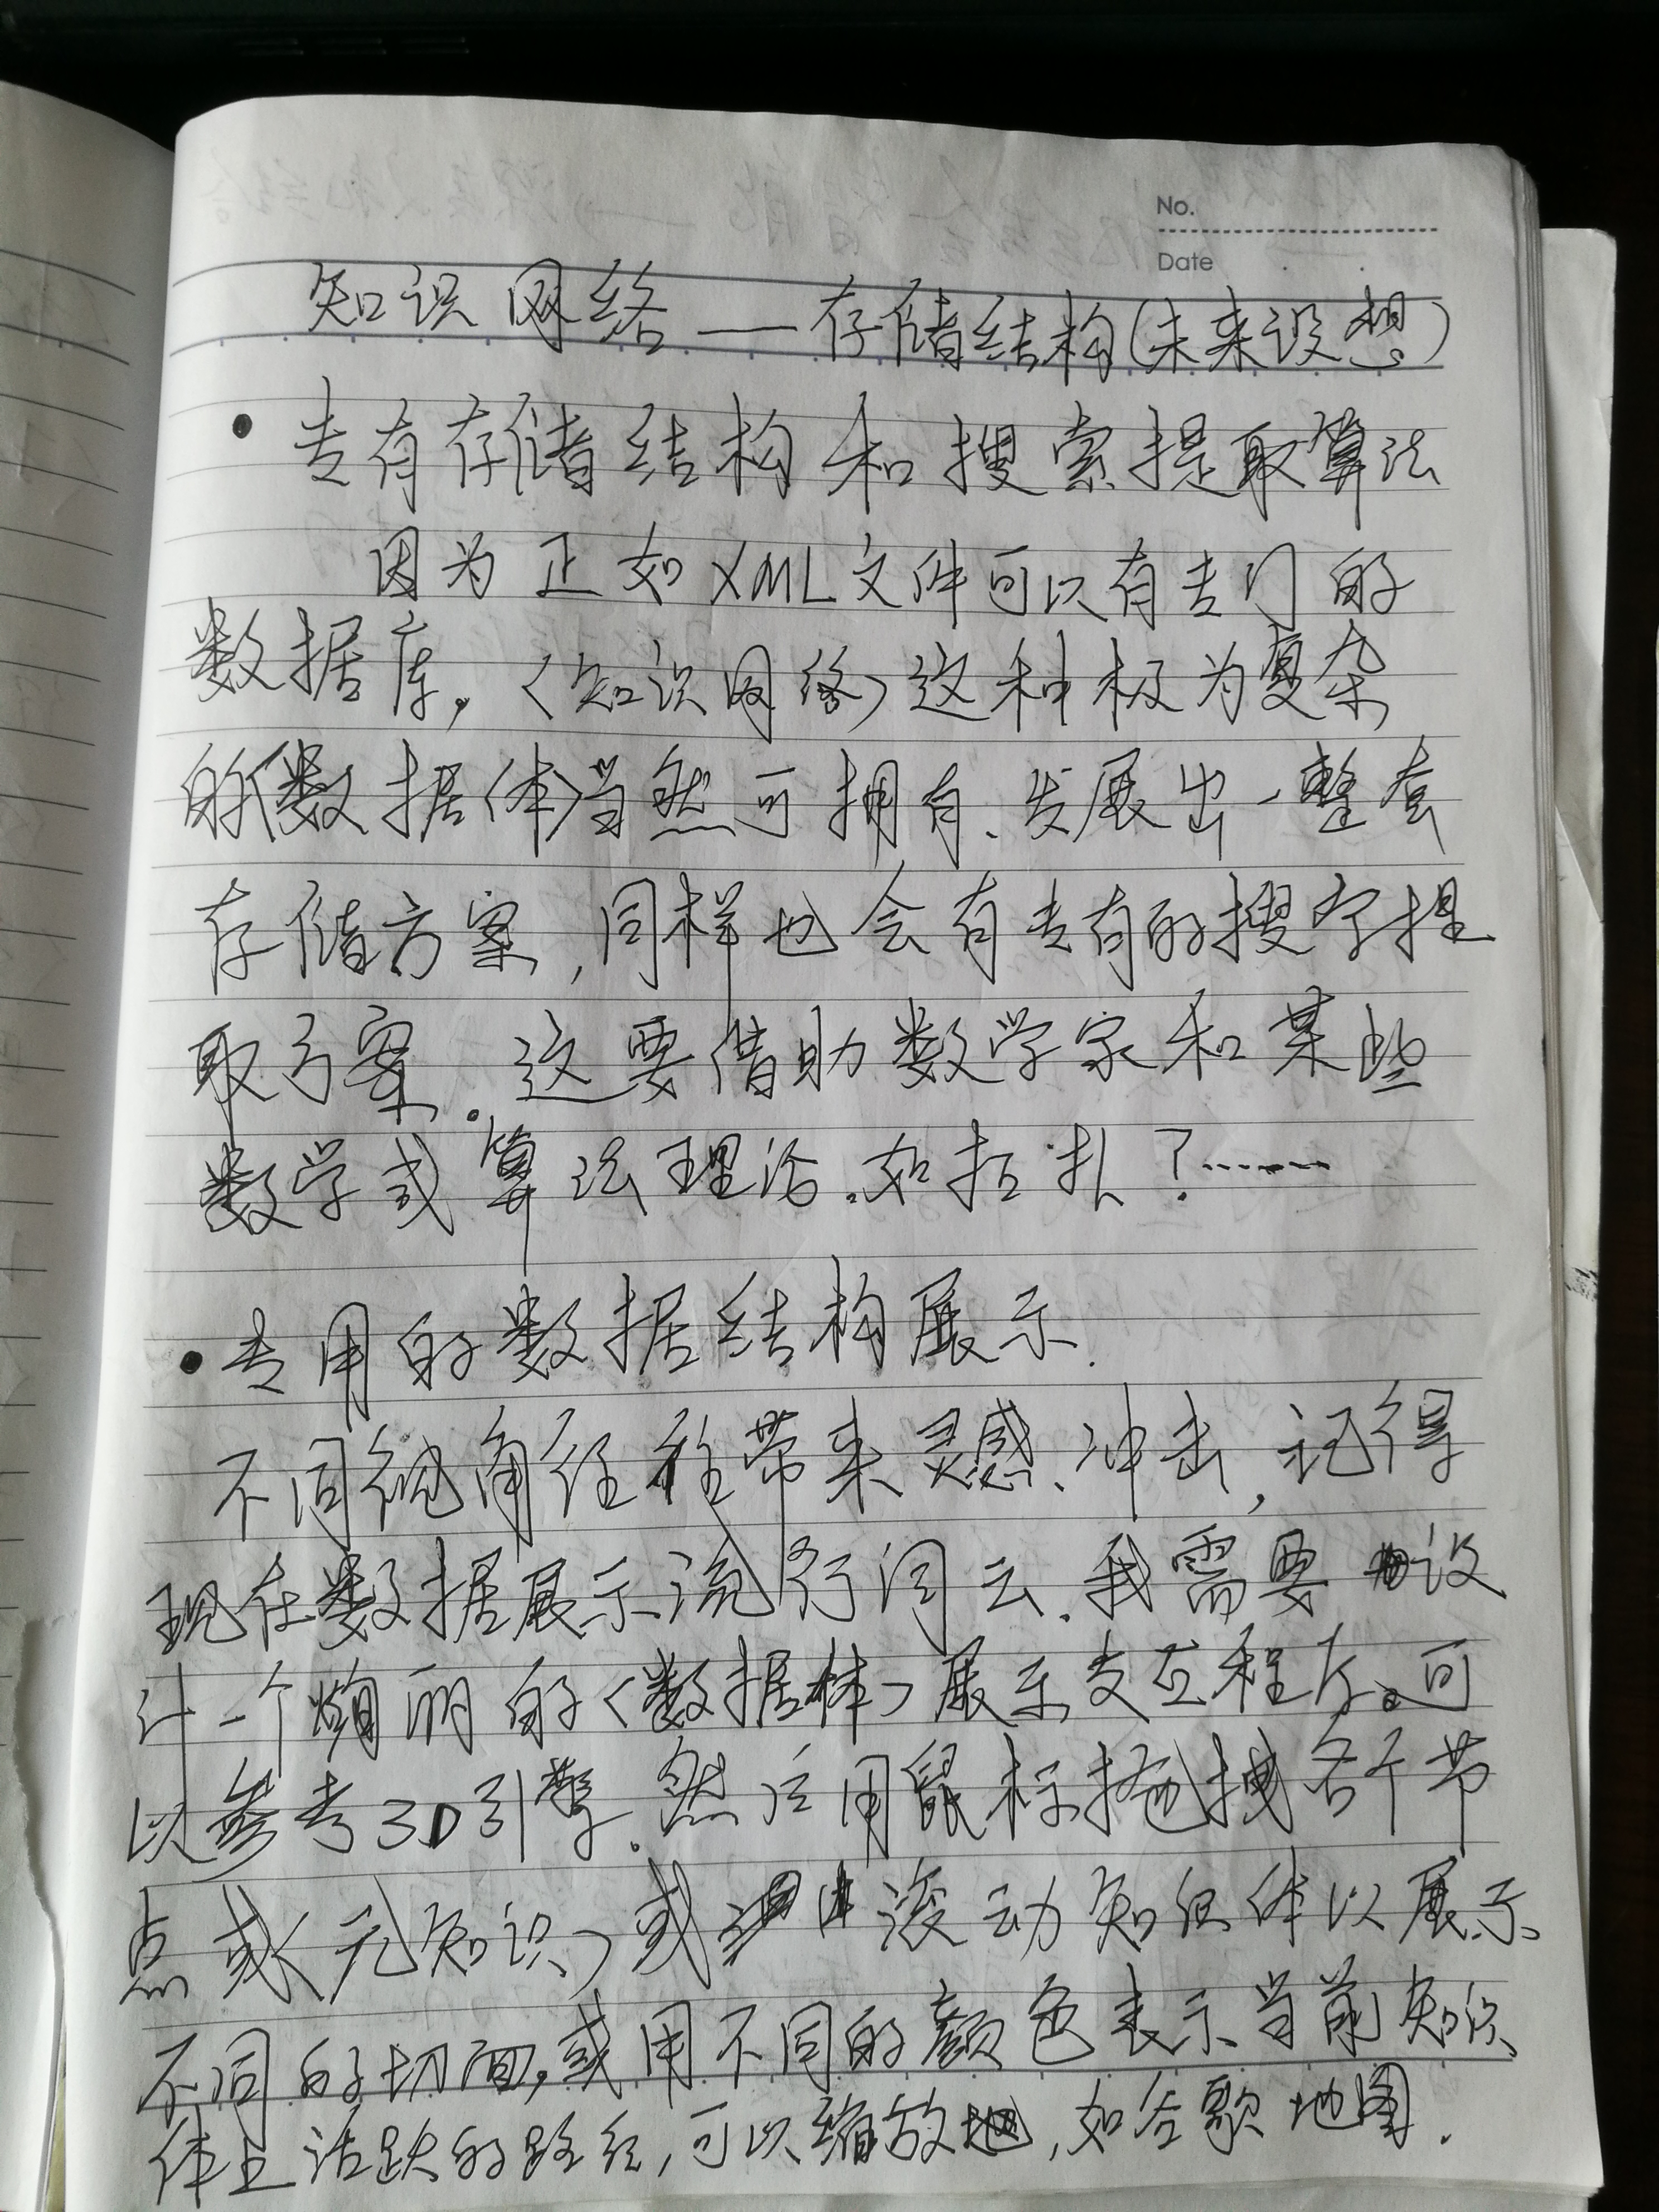 No.
Date
知识网络——存储结构(未来设想)
• 专有存储结构和搜索提取算法
因为正如XML文件可以有专门的
数据库,<知识网络>这种极为复杂
的<数据体>当然可拥有、发展出一整套
存储方案,同样也会有专有的搜字提
取方案.这要借助数学家和某些
数学或算法理论.如拓扑?……
• 专用的数据结构展示.
不同视角往往带来灵感、冲击,记得
现在数据展示流行词云.我需要设
计一个绚丽的<数据体>展示交互程序。可
以参考3D引擎.然后用鼠标拖拽各个节
点或<元知识>或滚动知识体以展示
不同的切面,或用不同的颜色表示当前知识
体上活跃的路径,可以缩放地,如谷歌地图.